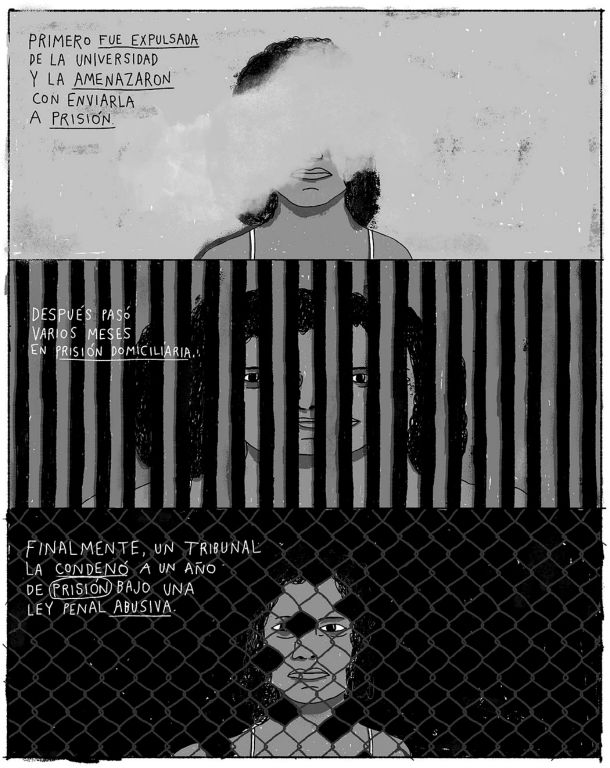 PRIMERO FUE EXPULSADA
DE LA UNIVERSIDAD
Y LA AMENAZARON
CON ENVIARLA
A PRISIÓN
DESPUÉS PASÓ
VARIOS MESES
EN PRISIÓN DOMICILIARIA.
FINALMENTE, UN TRIBUNAL
LA CONDENÓ A UN AÑO
DE PRISIÓN BAJO UNA
LEY PENAL ABUSIVA.